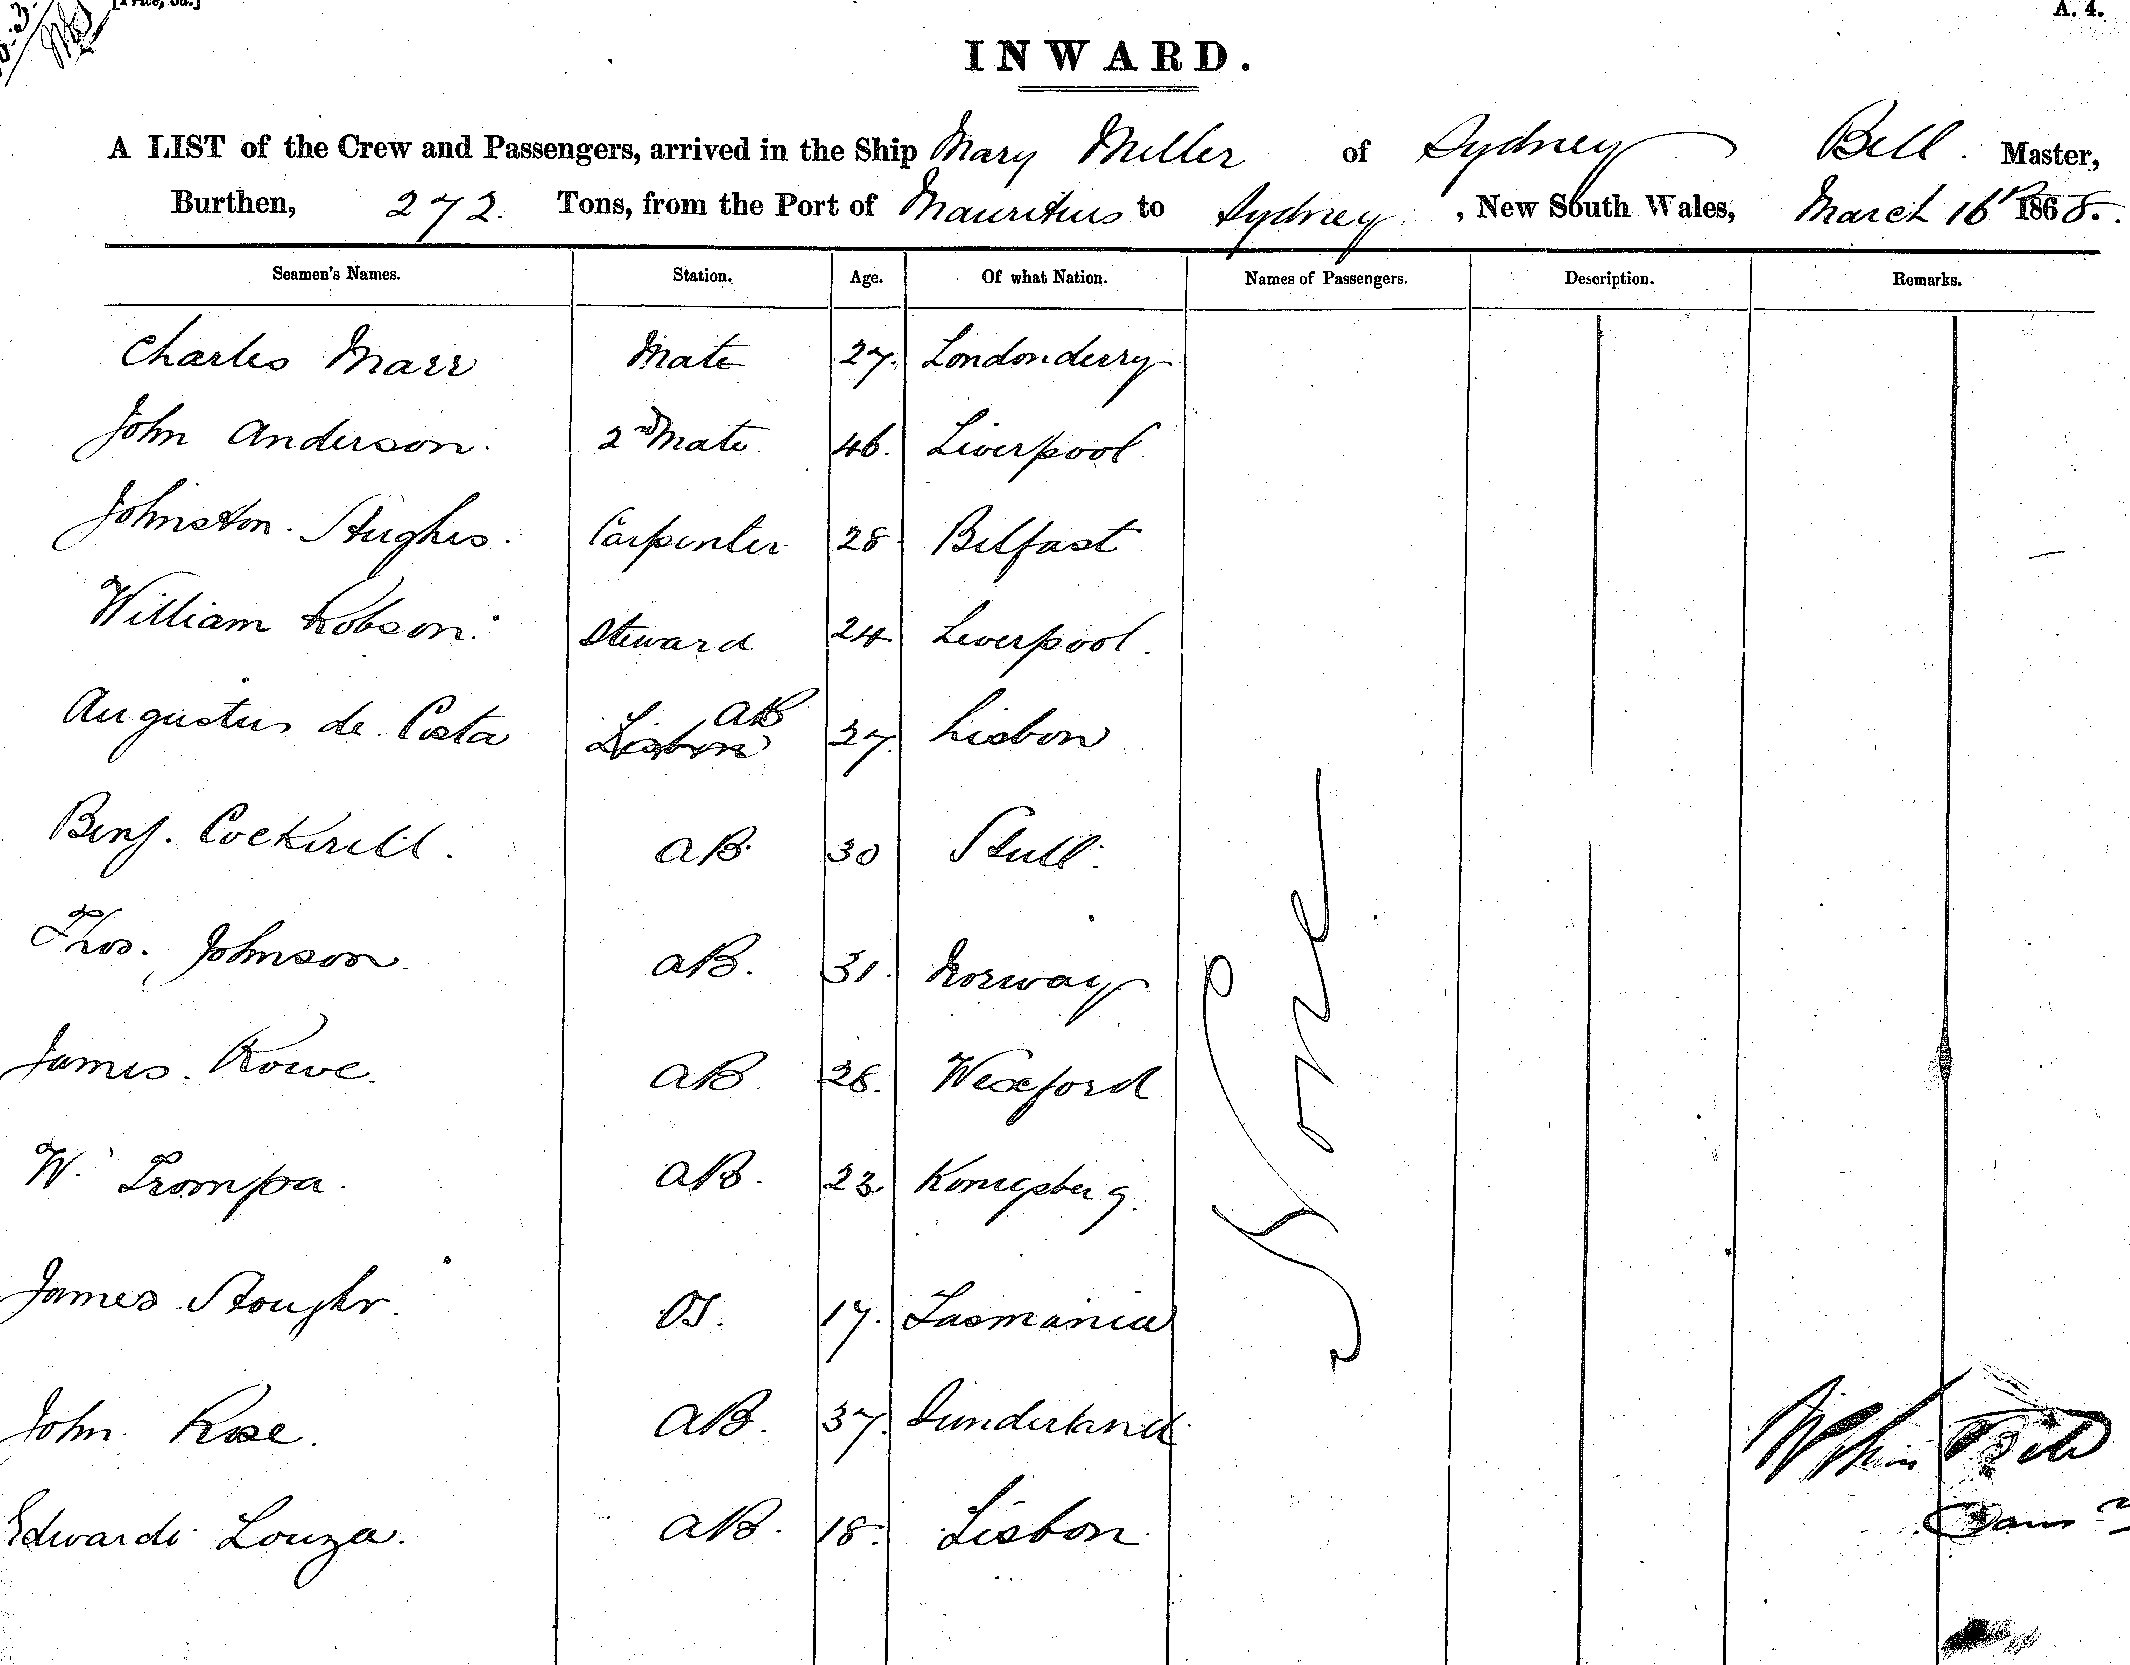 [Price, 3d.]
A. 4.
INWARD.
A LIST of the Crew and Passengers, arrived in the Ship Mary Miller of Sydney Bell. Master,
Burthen, 272. Tons, from the Port of Mauritius to Sydney, New South Wales, March 16th 1868.
Seamen's Names. Station. Age. Of what Nation. Names of Passengers. Description. Remarks.
Charles Marr Mate 27. Londonderry
John Anderson. 2nd Mate 46. Liverpool
Johnston Hughes. Carpenter 28 Belfast
William Robson. Steward 24 Liverpool.
Augustus de Costa Lisbon AB 27. Lisbon
Benj. Cockerill. AB 30 Hull.
Thos. Johnson. AB. 31. Norway
James. Rowe. AB 28. Wexford
W. Trompa. AB. 23. Konigsberg.
James OS. 17. Tasmania
John Rose. AB. 37. Sunderland
Edwardi Louza. AB. 18. Lisbon
None
Bell